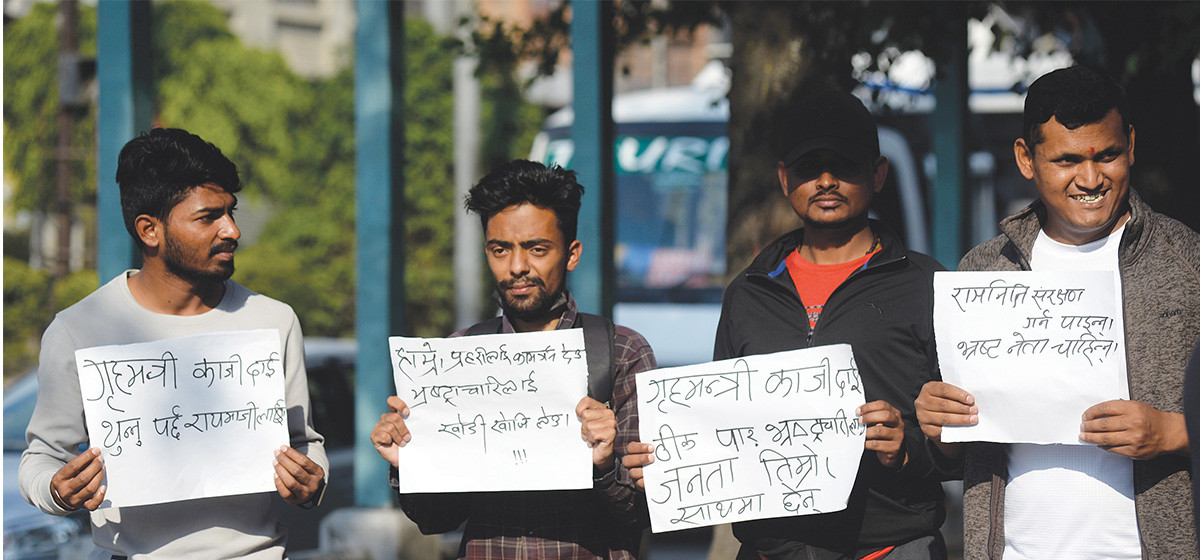 गृहमत्री काजी दाई
थुनु पर्छ रायमाजीलाई
हाम्रो प्रहरीलाई काम गर्न देउ
भ्रष्टाचारिलाई
खोजी खोजि लेउ।
!!!
गृहमन्त्री काजी दाई
ठीक पार भ्रष्ट्रचारीलाई
जनता तिम्रो
साथमा छन्
राजनिति संरक्षण
गर्न पाइन्न।
भ्रष्ट नेता चाहिन्न।
URI